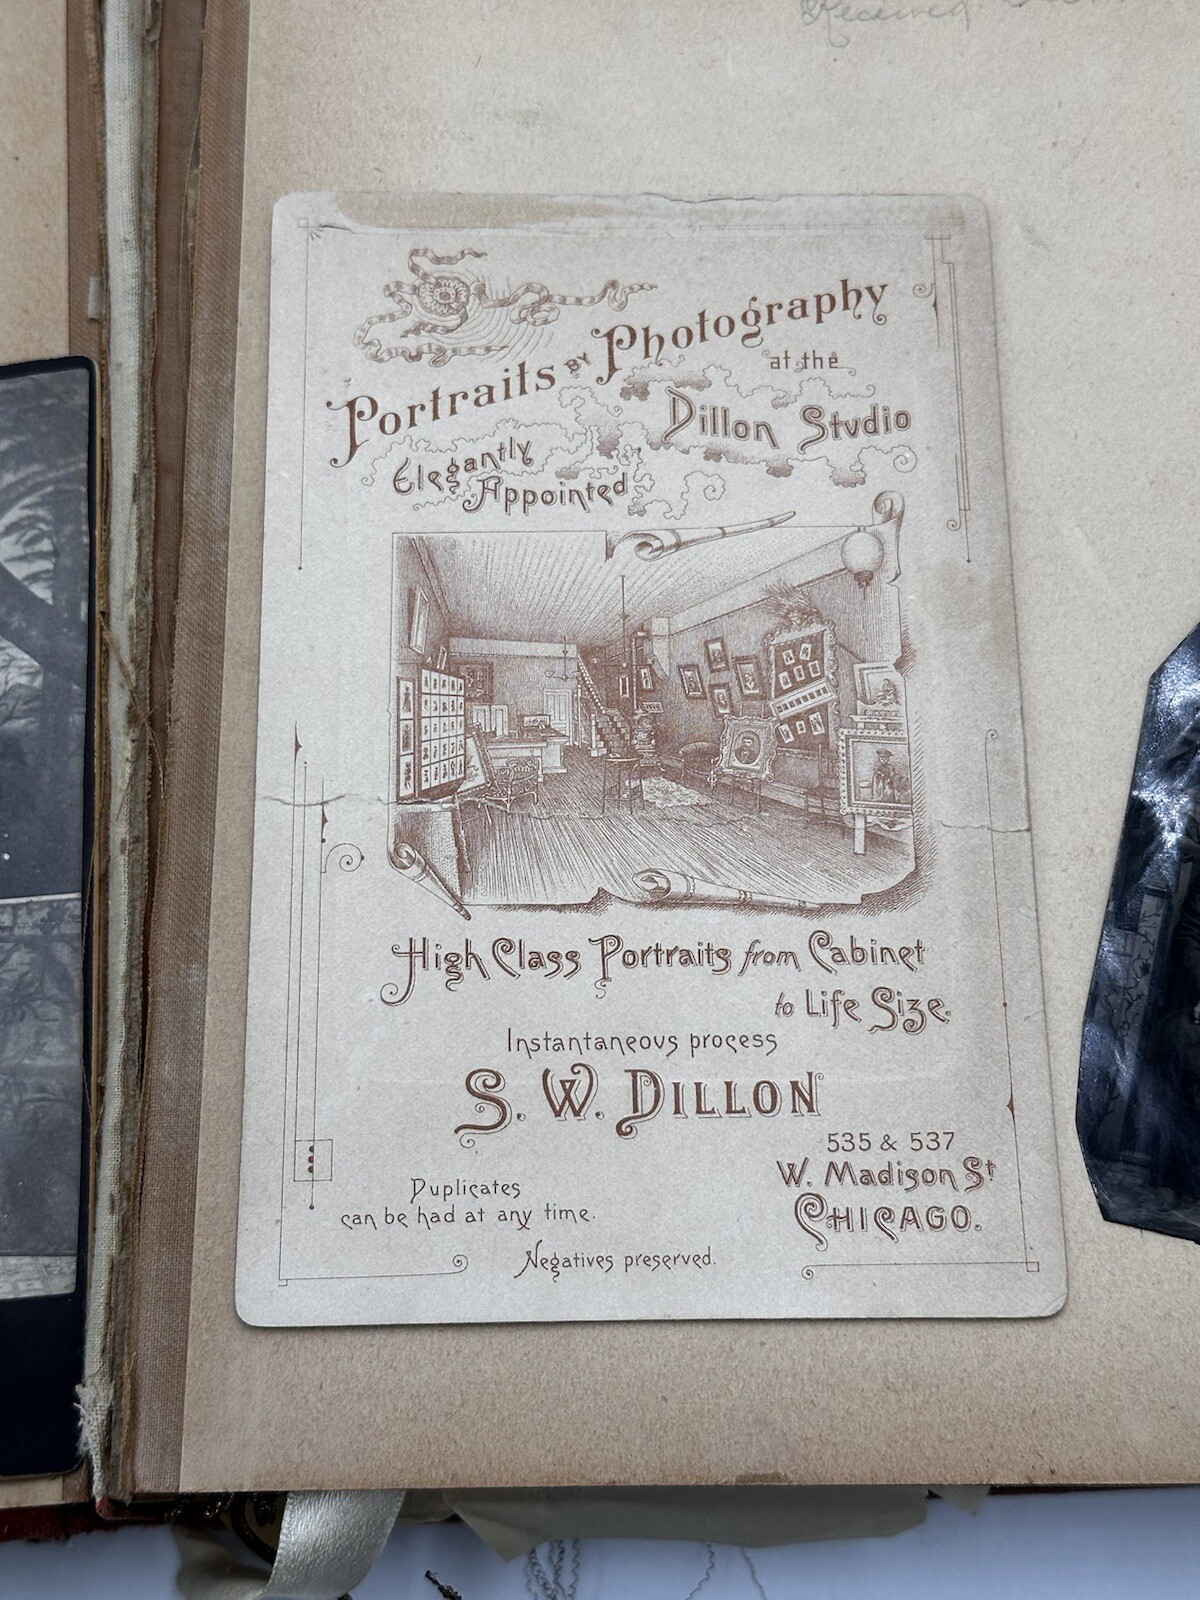 Received
Portraits BY Photography
at the
Dillon Studio
Elegantly
Appointed
High Class Portraits from Cabinet
to Life Size.
Instantaneous process
S. W. DILLON
535 & 537
W. Madison St
CHICAGO.
Duplicates
can be had at any time.
Negatives preserved.